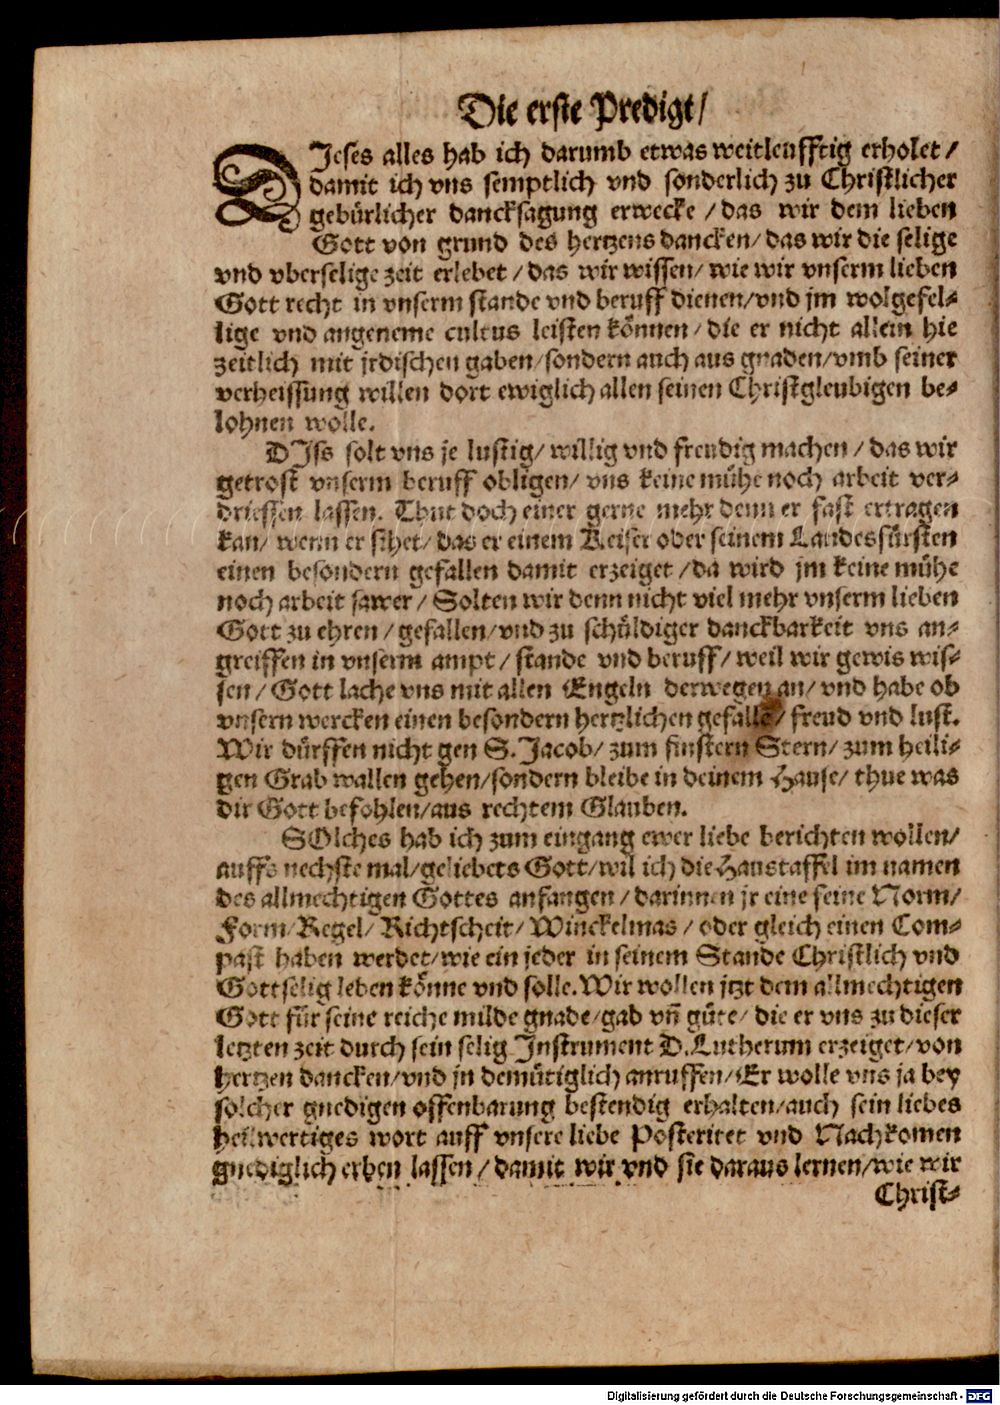 Die erste Predigt/
DJeses alles hab ich darumb etwas weitleufftig erholet/
damit ich vns semptlich vnd sonderlich zu Christlicher
gebürlicher dancksagung erwecke/das wir dem lieben
Gott von grund des hertzens dancken/das wir die selige
vnd vberselige zeit erlebet/das wir wissen/wie wir vnserm lieben
Gott recht in vnserm stande vnd beruff dienen/vnd jm wolgefel-
lige vnd angeneme cultus leisten können/die er nicht allein hie
zeitlich mit jrdischen gaben/sondern auch aus gnaden/vmb seiner
verheissung willen dort ewiglich allen seinen Christgleubigen be-
lohnen wolle.
DJss solt vns je lustig/willig vnd freudig machen/das wir
getrost vnserm beruff obligen/vns keine mühe noch arbeit ver-
driessen lassen. Thut doch einer gerne mehr denn er fast ertragen
kan/wenn er sihet/das er einem Keiser oder seinem Landesfürsten
einen besondern gefallen damit erzeiget/da wird jm keine mühe
noch arbeit sawer/Solten wir denn nicht viel mehr vnserm lieben
Gott zu ehren/gefallen/vnd zu schüldiger danckbarkeit vns an-
greiffen in vnserm ampt/stande vnd beruff/weil wir gewis wis-
sen/Gott lache vns mit allen Engeln derwegen an/vnd habe ob
vnsern wercken einen besondern hertzlichen gefalle/freud vnd lust.
Wir dürffen nicht gen S. Jacob/zum finstern Stern/zum heili-
gen Grab wallen gehen/sondern bleibe in deinem Hause/thue was
dir Gott befohlen/aus rechtem Glauben.
SOlches hab ich zum eingang ewer liebe berichten wollen/
auffs nechste mal/geliebets Gott/wil ich die Haustaffel im namen
des allmechtigen Gottes anfangen/darinnen jr eine feine Norm/
Form/Regel/Richtscheit/Winckelmas/oder gleich einen Com-
past haben werdet/wie ein jeder in seinem Stande Christlich vnd
Gottselig leben könne vnd solle. Wir wollen jtzt dem allmechtigen
Gott für seine reiche milde gnade/gab vñ güte/die er vns zu dieser
letzten zeit durch sein selig Instrument D. Lutherum erzeiget/von
hertzen dancken/vnd jn demütiglich anruffen/Er wolle vns ja bey
solcher gnedigen offenbarung bestendig erhalten/auch sein liebes
heilwertiges wort auff vnsere liebe Posteritet vnd Nachkomen
gnediglich erben lassen/damit wir vnd sie daraus lernen/wie wir
Christ-
Digitalisierung gefördert durch die Deutsche Forschungsgemeinschaft - DFG